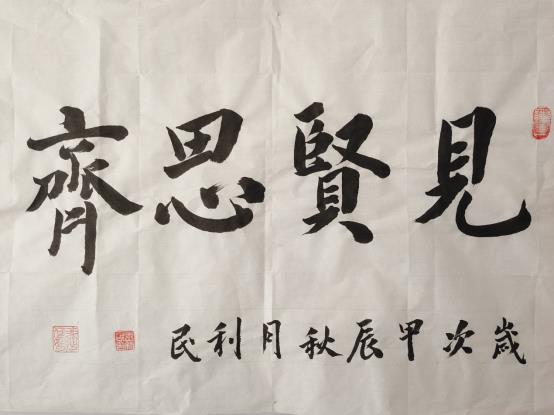 見賢思齊
歲次甲辰秋月利民